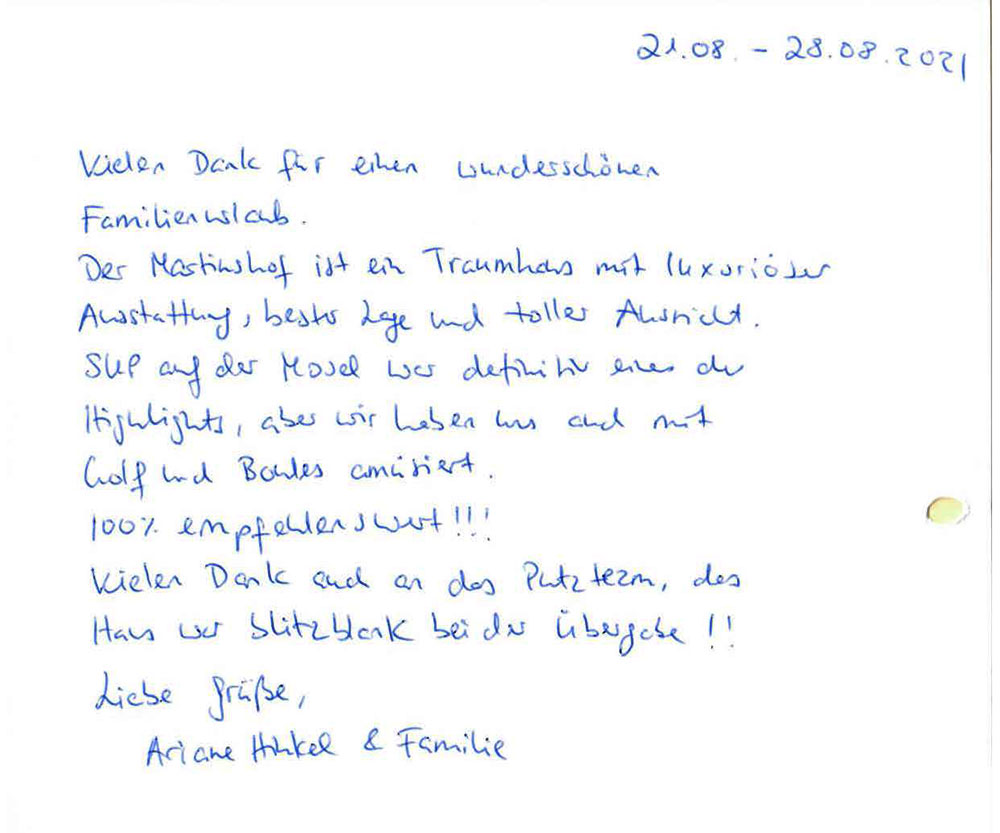 21.08. - 28.08.2021
Vielen Dank für einen wunderschönen
Familienurlaub.
Der Martinshof ist ein Traumhaus mit luxuriöser
Ausstattung, bester Lage und toller Aussicht.
SUP auf der Mosel war definitiv eines der
Highlights, aber wir haben uns auch mit
Golf und Boules amüsiert.
100% empfehlenswert!!!
Vielen Dank auch an das Putzteam, das
Haus war blitzblank bei der Übergabe!!
Liebe Grüße,
Ariane Hinkel & Familie